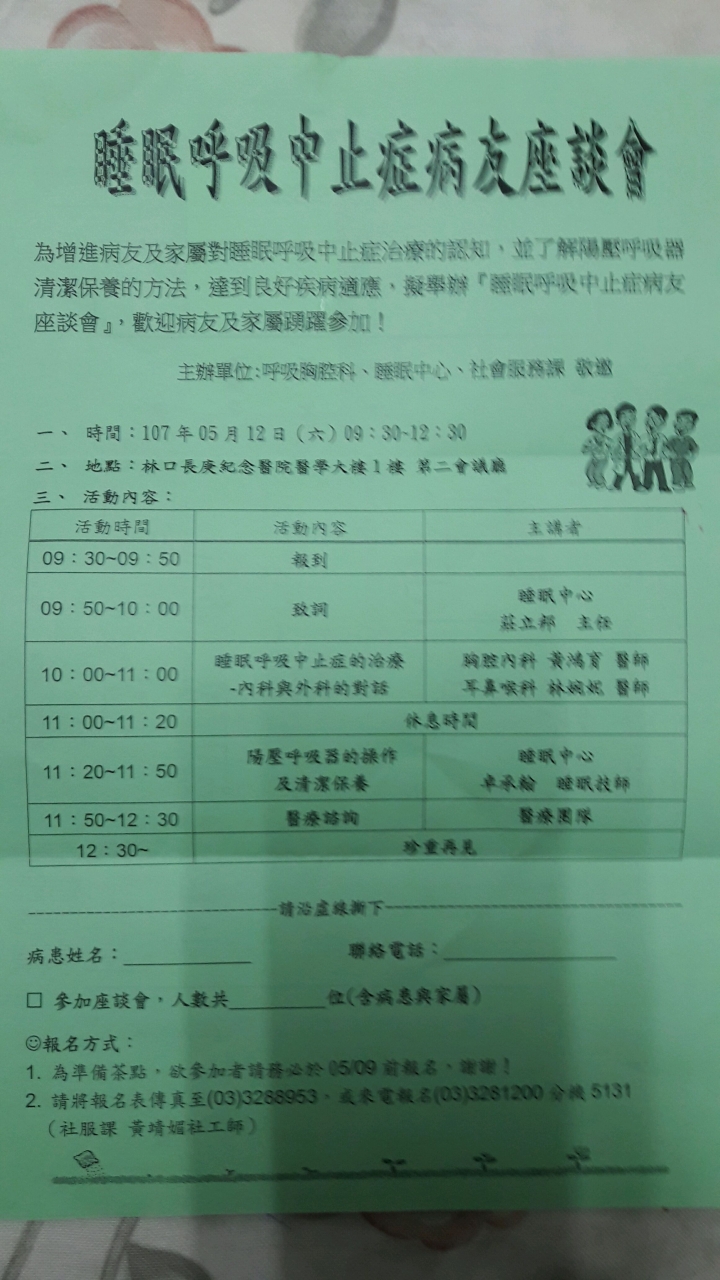 睡眠呼吸中止症病友座談會
為增進病友及家屬對睡眠呼吸中止症治療的認知，並了解陽壓呼吸器
清潔保養的方法，達到良好疾病適應，擬舉辦『睡眠呼吸中止症病友
座談會』，歡迎病友及家屬踴躍參加！
主辦單位:呼吸胸腔科、睡眠中心、社會服務課 敬邀
一、 時間：107 年 05 月 12 日（六）09：30~12：30
二、 地點：林口長庚紀念醫院醫學大樓 1 樓 第二會議廳
三、 活動內容：
活動時間 活動內容 主講者
09：30~09：50 報到
09：50~10：00 致詞 睡眠中心
莊立邦 主任
10：00~11：00 睡眠呼吸中止症的治療 胸腔內科 黃鴻育 醫師
-內科與外科的對話 耳鼻喉科 林婉妮 醫師
11：00~11：20 休息時間
11：20~11：50 陽壓呼吸器的操作 睡眠中心
及清潔保養 卓承翰 睡眠技師
11：50~12：30 醫療諮詢 醫療團隊
12：30~ 珍重再見
請沿虛線撕下
病患姓名： 聯絡電話：
□ 參加座談會，人數共 位(含病患與家屬)
☺報名方式：
1. 為準備茶點，欲參加者請務必於 05/09 前報名，謝謝！
2. 請將報名表傳真至(03)3288953，或來電報名(03)3281200 分機 5131
（社服課 黃靖媚社工師）